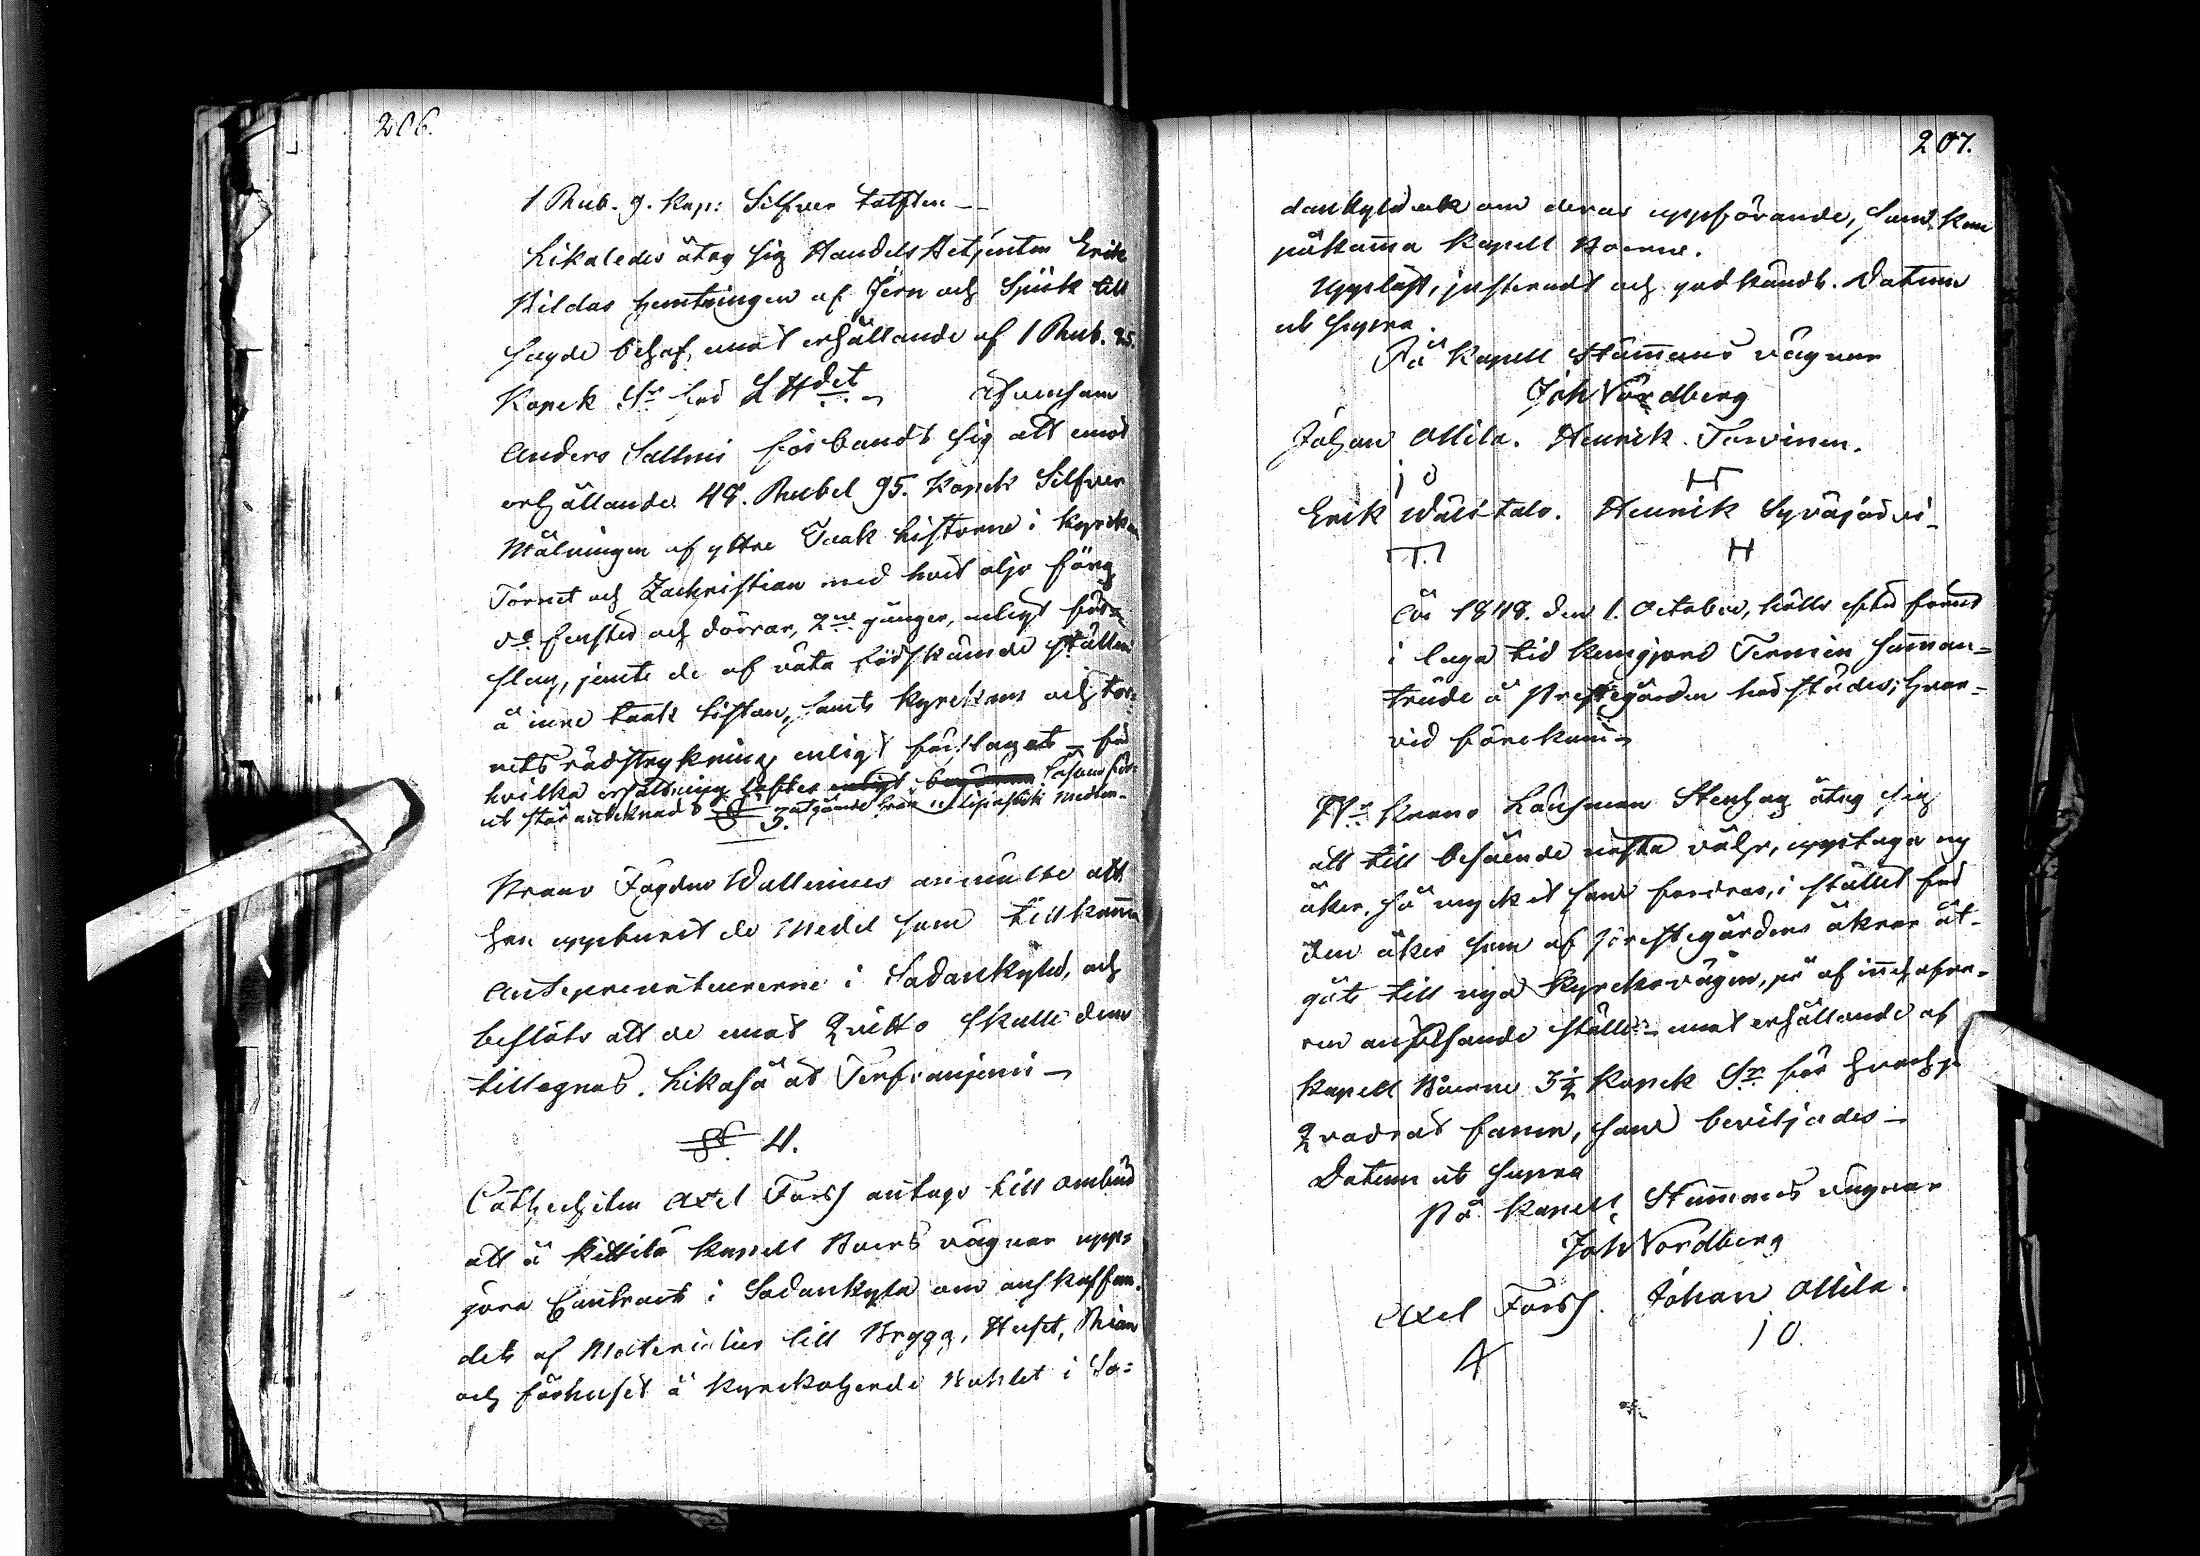 206.
1 Rub. 9. Kop: Silfver tolften
Likaledes åtog sig Handels Betjenten Erik
Nildas hemtningen af Jern och Spik till
sagde behof, mot erhållande af 1 Rub. 25.
Kopek Sr
Anders Salmi förbandt sig att emot
erhållande 48. Rubel 95. Kopek Silfver
Målningen af yttre Taak listerne i Kyrckan
Tornet och Zackristian med hvit olje färg
do fenster och dörrar, 2ne gånger, enligt för-
slag, jemte de af väta rödskämde ställen
å inre taak listan, samt Kyrckans och tor-
nets rödstrykning enligt förslaget för
hvilka
ut står antecknadt
§ 3.
Krono Fogden Wallenius anmälte att
han uppburit de Medel som tillkomma
Antepreneurerne i Sodankylä, och
beslöts att de emot Qvitto skulle dem
tillegnas. Likaså åt
§ 4.
Cathecheten Axel Forss antogs till ombud
att å Kittilä Kapell Boers vägnar upp-
göra Contract i Sodankylä om anskaffan-
det af Materialier till Brygg, Huset, Rian
och förhuset å Kyrckoherde Bohlet i So-
207.
dankylä ock om deras uppförande, som kan
påkomma Kapell Boerne.
Uppläst, justeradt och godkändt. Datum
ut supra.
På Kapell Stämmans vägnar
Joh Nordberg
Johan Ollila. Henrik Torvinen.
I O H
Erik Wälitalo. Henrik Syväjärvi
H
År 1848. den 1. October, hölls efter förut
i laga tid kungjord Termin Samman-
träde å Prestegården härstädes; hvar-
vid förekom
Hr Krono Länsman Stenhag åtog sig
att till besående nesta vår, upptaga ny
åker, så mycket som fordras, i stället för
den åker som af Prestegårdens åkrar åt-
gått till nya Kyrckovägen, på af innehafva-
ren anvisande ställe emot erhållande af
Kapell Boerne 3½ Kopek Sr för hvarje
Qvadrat famn, som beviljades
Datum ut supra
På Kapell Stämmans vägnar
Joh Nordberg
Axel Forss. Johan Ollila.
A I O.